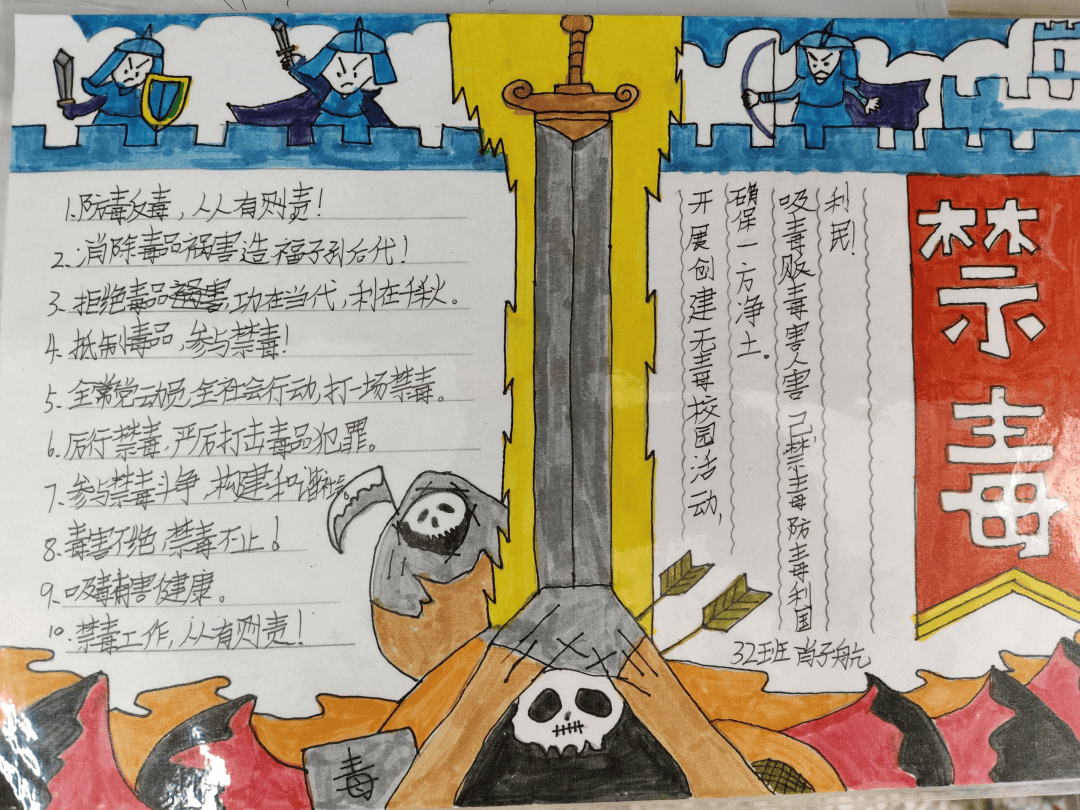 1.防毒反毒，人人有则责！
2.消除毒品祸害造福子孙后代！
3.拒绝毒品祸害,功在当代，利在千秋。
4.抵制毒品,参与禁毒！
5.全党动员,全社会行动,打一场禁毒。
6.厉行禁毒,严厉打击毒品犯罪。
7.参与禁毒斗争,构建和谐
8.毒害不绝,禁毒不止！
9.吸毒有害健康。
10.禁毒工作,人人有则责！
开展创建无毒校园活动，
确保一方净土。
吸毒贩毒害人害己禁毒防毒利国
利民！
禁毒
32班肖子航
毒